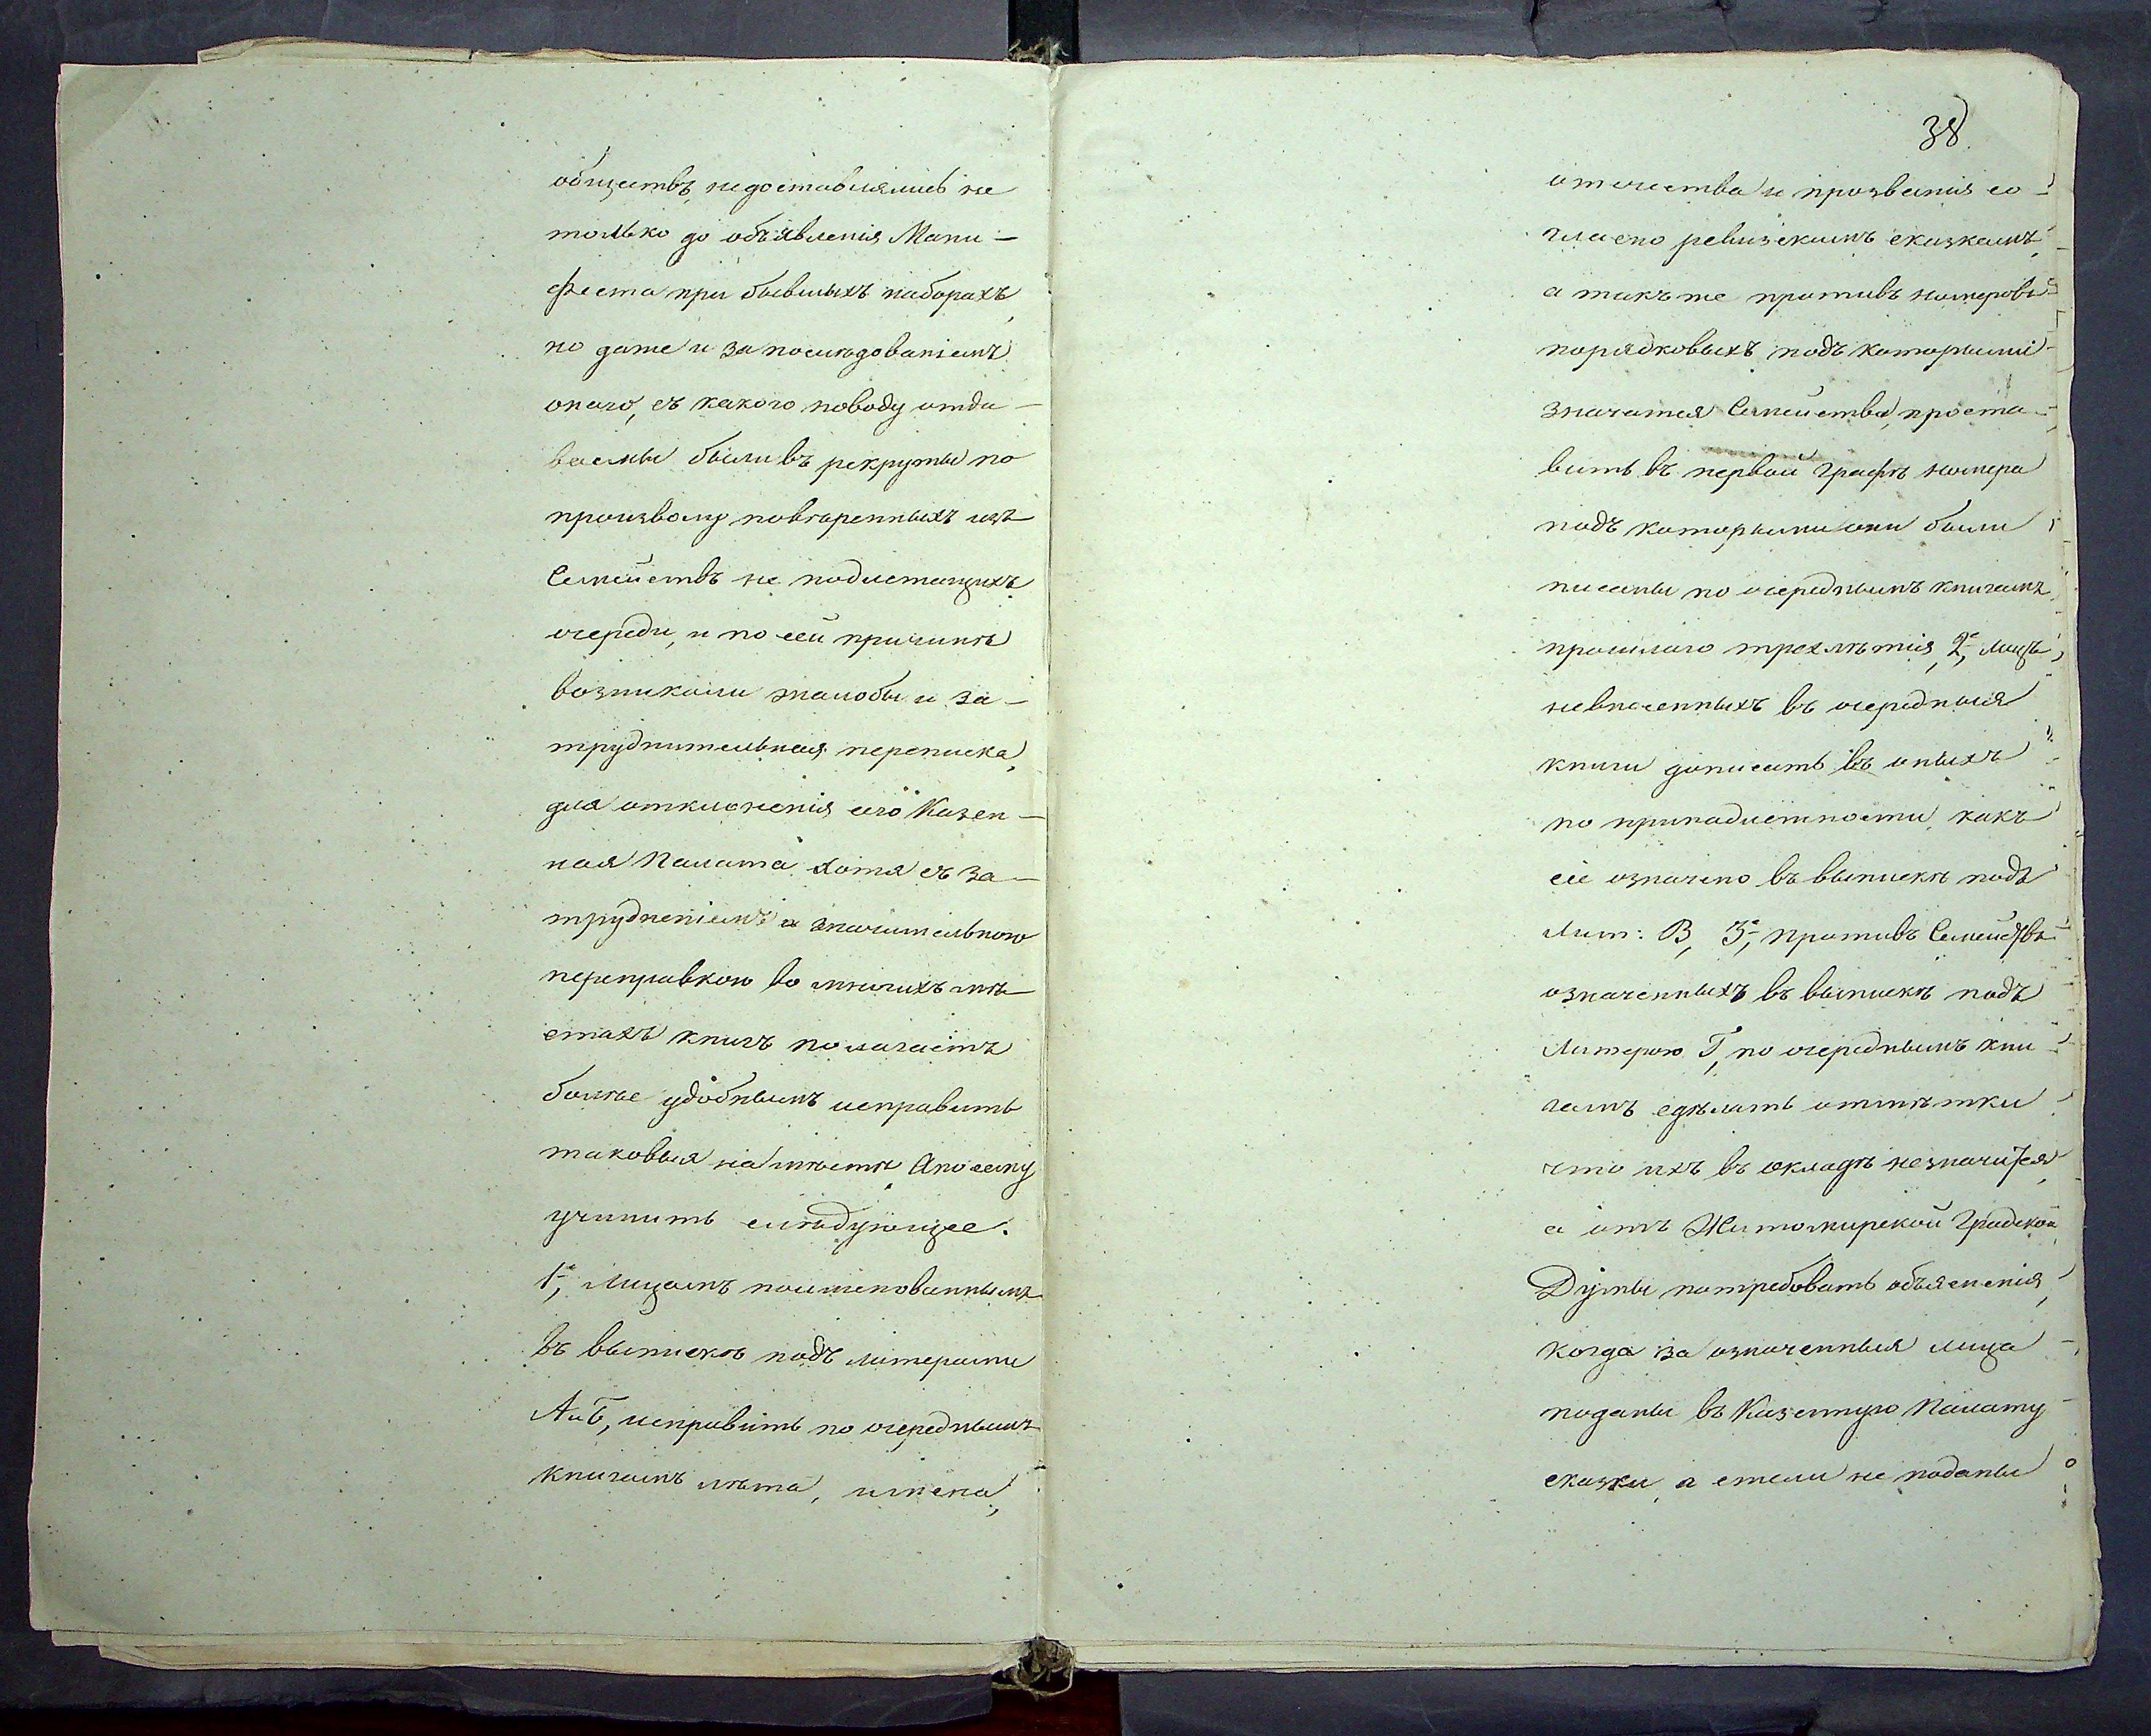 обществъ, недоставлялись не
только до объявленія Мани-
феста при бывшихъ наборахъ,
но даже и за послѣдованіемъ
онаго, съ какого поводу отда-
ваемы были въ рекруты по
произволу повѣренныхъ изъ
Семействъ не подлежащихъ
очереди, и по сей причинѣ
возникали жалобы и за-
труднительная переписка,
для отклоненія сего Казен-
ная Палата хотя съ за-
трудненіемъ и значительною
переправкою во многихъ мѣ-
стахъ книгъ полагаетъ
болѣе удобнымъ исправить
таковыя на мѣстѣ, А по сему
учинить слѣдующее.
1е, Лицамъ поименованнымъ
въ выпискѣ подъ литерами
А и Б, исправить по очереднымъ
книгамъ лѣта, имена,
38.
отечества и прозванія со-
гласно ревизскимъ сказкамъ,
а такъ же противъ номеровъ
порядковыхъ подъ которыми
значатся Семейства, проста-
вить въ первой графѣ номера
подъ которыми они были
писаны по очереднымъ книгамъ
прошлаго трехлѣтія, 2е, Лицъ,
невнесенныхъ въ очередныя
книги дописать въ оныхъ
по принадлежности, какъ
сіе означено въ выпискѣ подъ
Лит: В, 3е, противъ Семействъ
означенныхъ въ выпискѣ подъ
Литерою Г, по очереднымъ кни-
гамъ сдѣлать отмѣтки
что ихъ въ окладѣ незначится,
а отъ Житомирской Градской
Думы потребовать объясненія,
когда за означенныя лица
поданы въ Казенную Палату
сказки, а ежели не поданы